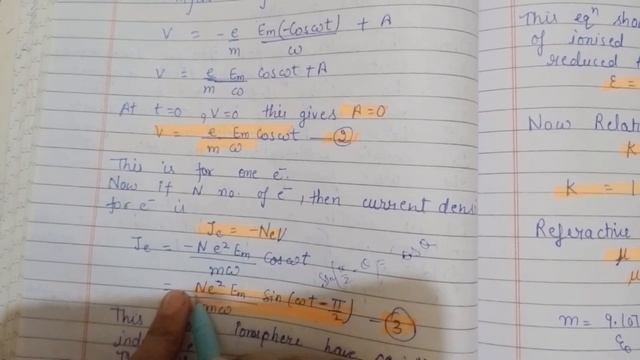 V = -e/m Em(-Cosωt)/ω + A
V = e/m Em/ω Cosωt + A
At t=0, V=0 this gives A=0
V = e/m Em/ω Cosωt — ②
This is for one e⁻.
Now if N no. of e⁻, then current dens
for e⁻ is
Je = -NeV
Je = -Ne²Em/mω Cosωt
= Ne²Em/mω Sin(ωt - π/2) — ③
This
Ionosphere have
This eqⁿ sho
of ionised
reduced
ε =
Now Relat
K
K = 1
Refractive
μ
μ
m = 9.107